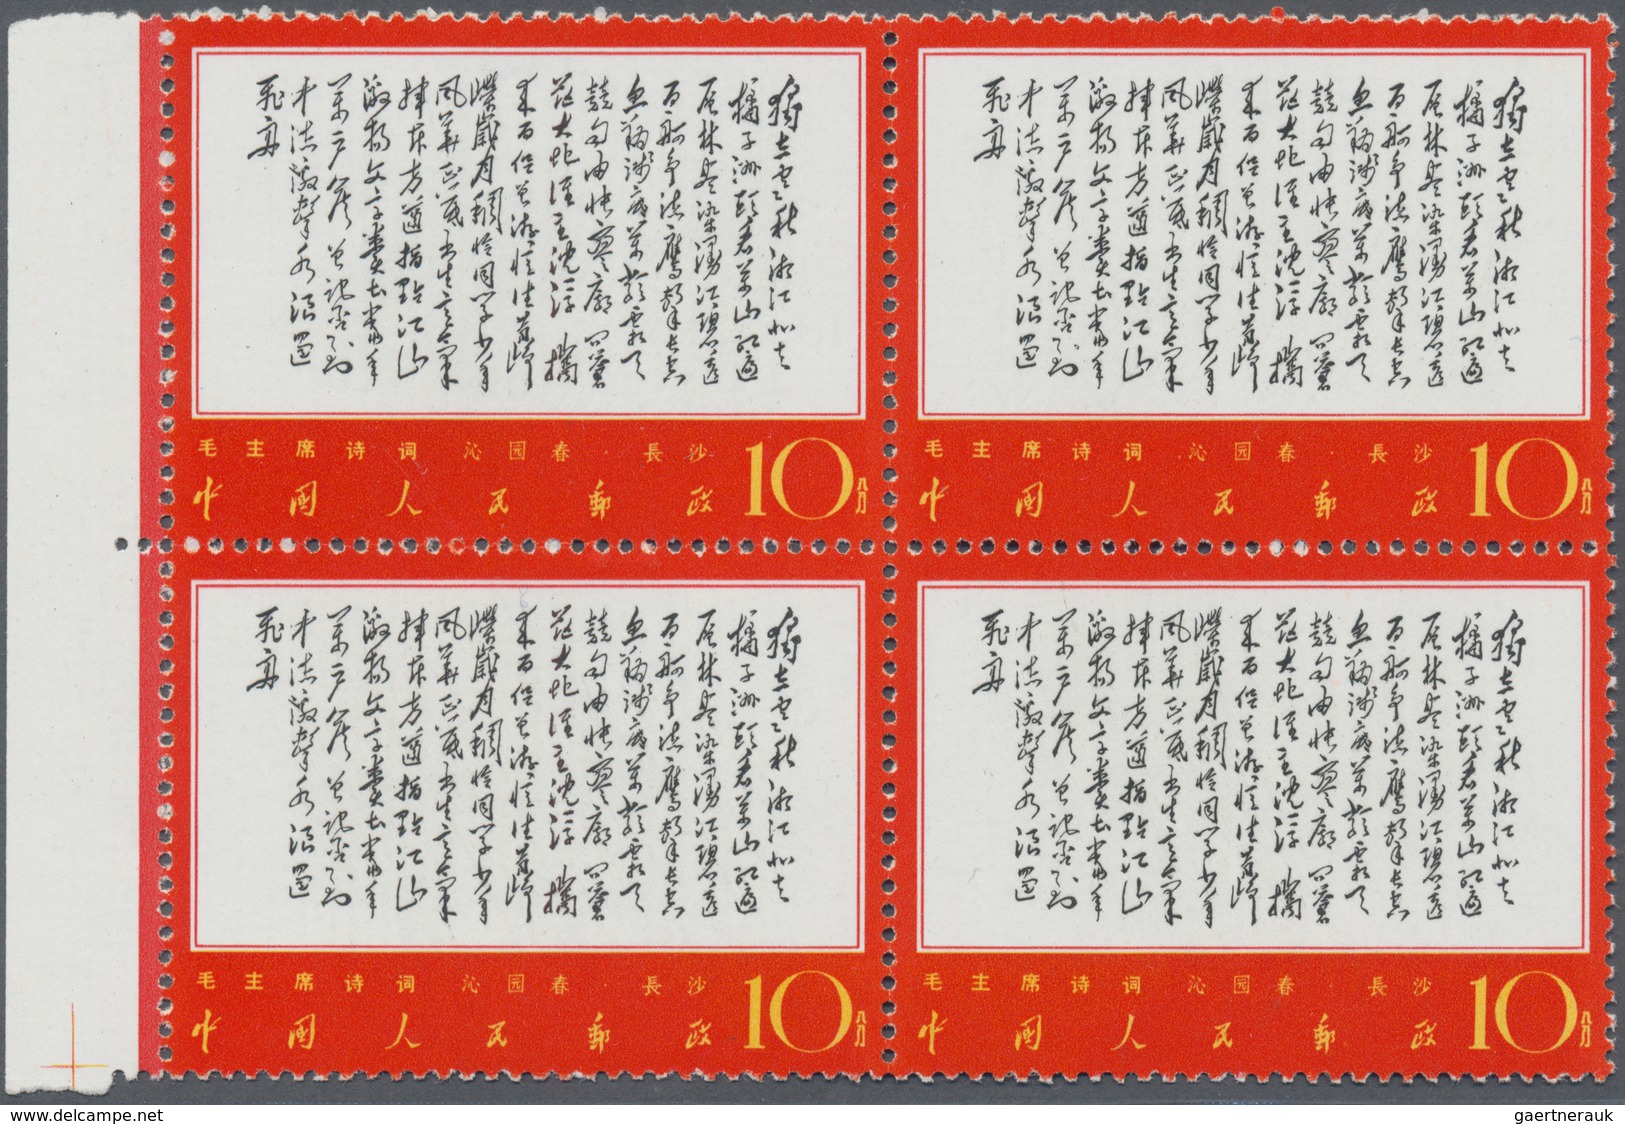 獨立寒秋湘江北去
橘子洲頭看萬山红遍
层林尽染漫江碧透
百舸争流鹰擊长空
鱼翔浅底萬類霜天
競自由怅寥廓问蒼
茫大地谁主沉浮攜
来百侣曾游忆往昔峥
嵘歲月稠恰同学少年
风華正茂书生意气
挥斥方遒指點江山
激扬文字粪土當年
萬户侯曾记否到
中流擊水浪遏
飛舟
毛主席诗词 沁园春·長沙
中國人民郵政
10分
獨立寒秋湘江北去
橘子洲頭看萬山红遍
层林尽染漫江碧透
百舸争流鹰擊长空
鱼翔浅底萬類霜天
競自由怅寥廓问蒼
茫大地谁主沉浮攜
来百侣曾游忆往昔峥
嵘歲月稠恰同学少年
风華正茂书生意气
挥斥方遒指點江山
激扬文字粪土當年
萬户侯曾记否到
中流擊水浪遏
飛舟
毛主席诗词 沁园春·長沙
中國人民郵政
10分
獨立寒秋湘江北去
橘子洲頭看萬山红遍
层林尽染漫江碧透
百舸争流鹰擊长空
鱼翔浅底萬類霜天
競自由怅寥廓问蒼
茫大地谁主沉浮攜
来百侣曾游忆往昔峥
嵘歲月稠恰同学少年
风華正茂书生意气
挥斥方遒指點江山
激扬文字粪土當年
萬户侯曾记否到
中流擊水浪遏
飛舟
毛主席诗词 沁园春·長沙
中國人民郵政
10分
獨立寒秋湘江北去
橘子洲頭看萬山红遍
层林尽染漫江碧透
百舸争流鹰擊长空
鱼翔浅底萬類霜天
競自由怅寥廓问蒼
茫大地谁主沉浮攜
来百侣曾游忆往昔峥
嵘歲月稠恰同学少年
风華正茂书生意气
挥斥方遒指點江山
激扬文字粪土當年
萬户侯曾记否到
中流擊水浪遏
飛舟
毛主席诗词 沁园春·長沙
中國人民郵政
10分
www.delcampe.net
gaertnerauk